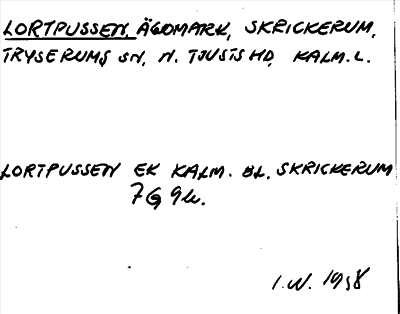 LORTPUSSEN ÄGOMARK, SKRICKERUM,
TRYSERUMS SN, N. TJUSTS HD, KALM. L.
LORTPUSSEN EK KALM. BL. SKRICKERUM
7G 9h.
I.W. 1958